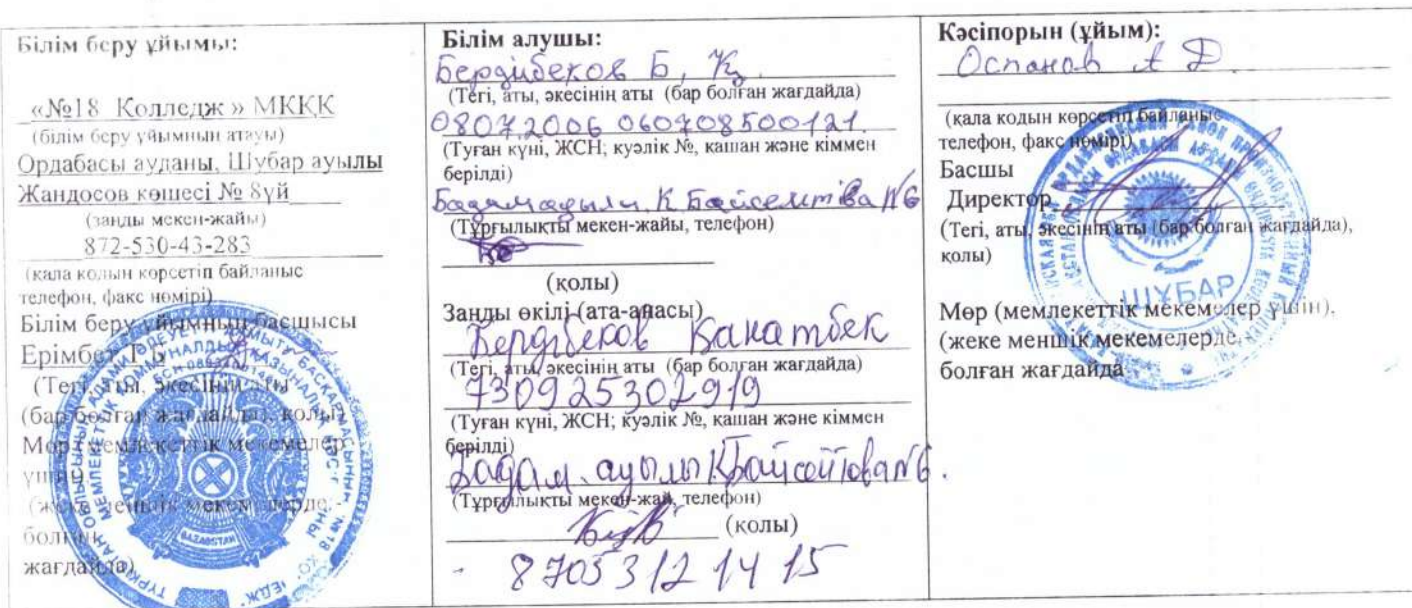 Білім беру ұйымы:
«№18 Колледж » МКҚК
(білім беру ұйымның атауы)
Ордабасы ауданы, Шұбар ауылы
Жандосов көшесі № 8үй
(заңды мекен-жайы)
872-530-43-283
(қала кодын көрсетіп байланыс
телефон, факс нөмірі)
Білім беру ұйымның басшысы
Ерімбет Г.Б
(Тегі, аты, әкесінің аты
(бар болған жағдайда), қолы)
Мөр (мемлекеттік мекемелер
үшін),
(жеке меншік мекемелерде -
болған
жағдайда)
Білім алушы:
Бердибеков Б, Қ.
(Тегі, аты, әкесінің аты (бар болған жағдайда)
08.07.2006 060708500121.
(Туған күні, ЖСН; куәлік №, қашан және кіммен
берілді)
Бадам ауылы К Байсеитова №6
(Тұрғылықты мекен-жайы, телефон)
(қолы)
Заңды өкілі (ата-анасы)
Бердібеков Қанатбек
(Тегі, аты, әкесінің аты (бар болған жағдайда)
730925302919
(Туған күні, ЖСН; куәлік №, қашан және кіммен
берілді)
Бадам. ауылы К Байсейтова №6.
(Тұрғылықты мекен-жай, телефон)
(қолы)
- 8 705 312 14 15
Кәсіпорын (ұйым):
Оспанов А Д.
(қала кодын көрсетіп байланыс
телефон, факс нөмірі)
Басшы
Директор
(Тегі, аты, әкесінің аты (бар болған жағдайда),
қолы)
ШҰБАР
Мөр (мемлекеттік мекемелер үшін),
(жеке меншік мекемелерде,
болған жағдайда